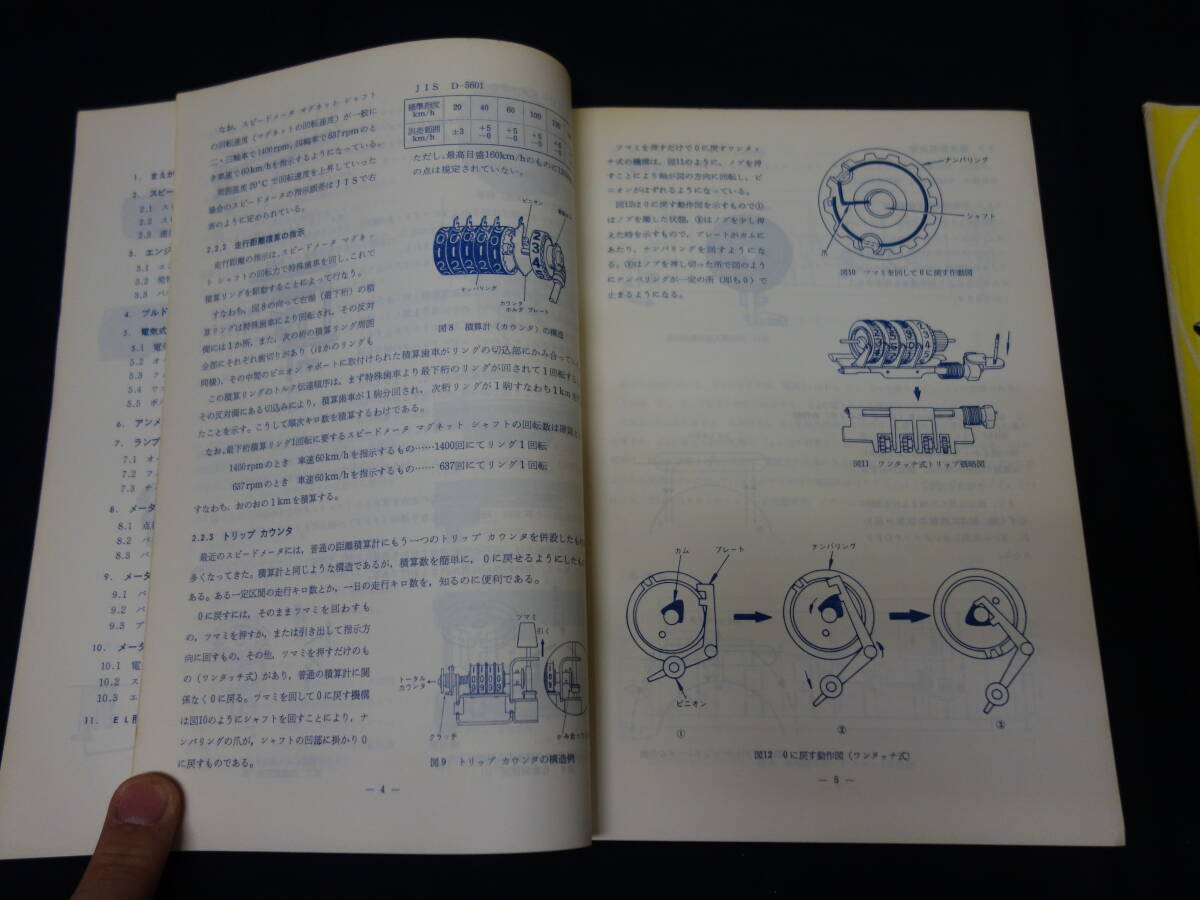 1. まえが
2. スピー
2.1 ス
2.2 ス
2.3
3. エンジ
3.1 エ
3.2
3.3 バ
4. プルド
5. 電気式
5.1 電
5.2 オ
5.3 フ
5.4 ウ
5.5 ボ
6. アンメ
7. ランプ
7.1 オ
7.2 フ
7.3 チ
8. メータ
8.1 点
8.2 バ
8.3 バ
9. メータ
9.1 バ
9.2 バ
9.3 ア
10. メータ
10.1 電
10.2 ス
10.3 エ
11. EL
なお、スピードメータ マグネット シャフト
の回転速度(マグネットの回転速度)が一般に
二、三輪車で1400rpm、四輪車で637rpmのと
き車速で60km/hを指示するようになっている。
周囲温度20°Cで回転速度を上昇していった
場合のスピードメータの指示誤差はJISで右
表のように定められている。
JIS D-5601
標準速度 km/h 20 40 60 100
誤差範囲 km/h ±3 +5 −0 +5 −0 +5 −0
ただし、最高目盛160km/hのものに
の点は規定されていない。
2.2.2 走行距離積算の指示
走行距離の指示は、スピードメータ マグネッ
ト シャフトの回転力で特殊歯車を回し、これで
積算リングを駆動することによって行なう。
すなわち、図8の向って右端(最下桁)の積
算リングは特殊歯車により回転され、その反対
側には1か所、また、次の桁の積算リング周囲
全部にそれぞれ歯切りがあり(ほかのリングも
同様)、その中間のピニオン サポートに取付けられた積算歯車がリングの切込部にかみ合ってい
この積算リングのトルク伝達順序は、まず特殊歯車より最下桁のリングが回されて1回転する
その反対側にある切込みにより、積算歯車が1駒分回され、次桁リングが1駒すなわち1kmを
たことを示す。こうして順次キロ数を積算するわけである。
なお、最下桁積算リング1回転に要するスピードメータ マグネット シャフトの回転数は
1400rpmのとき 車速60km/hを指示するもの……1400回にてリング1回転
637rpmのとき 車速60km/hを指示するもの…… 637回にてリング1回転
すなわち、おのおの1kmを積算する。
ピニオン
ナンバリング
カウンタ
ホルダ プレート
図8 積算計(カウンタ)の構造
2.2.3 トリップ カウンタ
最近のスピードメータには、普通の距離積算計にもう一つのトリップ カウンタを併設したもの
多くなってきた。積算計と同じような構造であるが、積算数を簡単に、0に戻せるようにしたもの
ある。ある一定区間の走行キロ数とか、一日の走行キロ数を、知るのに便利である。
0に戻すには、そのままツマミを回わすも
の、ツマミを押すか、または引き出して指示方
向に回すもの、その他、ツマミを押すだけのも
の(ワンタッチ式)があり、普通の積算計に関
係なく0に戻る。ツマミを回して0に戻す機構
は図10のようにシャフトを回すことにより、ナ
ンバリングの爪が、シャフトの凹部に掛かり0
に戻すものである。
ツマミ
引く
トータル
カウンタ
クラッチ
図9 トリップ カウンタの構造例
— 4 —
ツマミを押すだけで0に戻すワンタッ
チ式の機構は、図11のように、ノブを押
すことにより軸が図の方向に回転し、ピ
ニオンがはずれるようになっている。
図12は0に戻す動作図を示すもので①
はノブを離した状態、②はノブを少し押
えた時を示すもので、プレートがカムに
あたり、ナンバリングを回すようにな
る。③はノブを押し切った所で図のよう
にナンバリングが一定の所(即ち0)で
止まるようになる。
ナンバリング
シャフト
爪
図10 ツマミを回して0に戻す作動図
図11 ワンタッチ式トリップ概略図
カム
プレート
ナンバリング
ピニオン
①
②
③
図12 0に戻す動作図(ワンタッチ式)
— 5 —